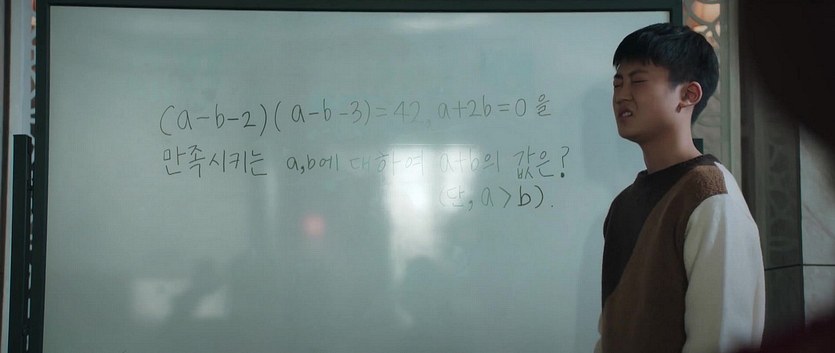 (a-b-2)(a-b-3)=42, a+2b=0 을
만족시키는 a,b에 대하여 a+b의 값은?
(단, a>b).